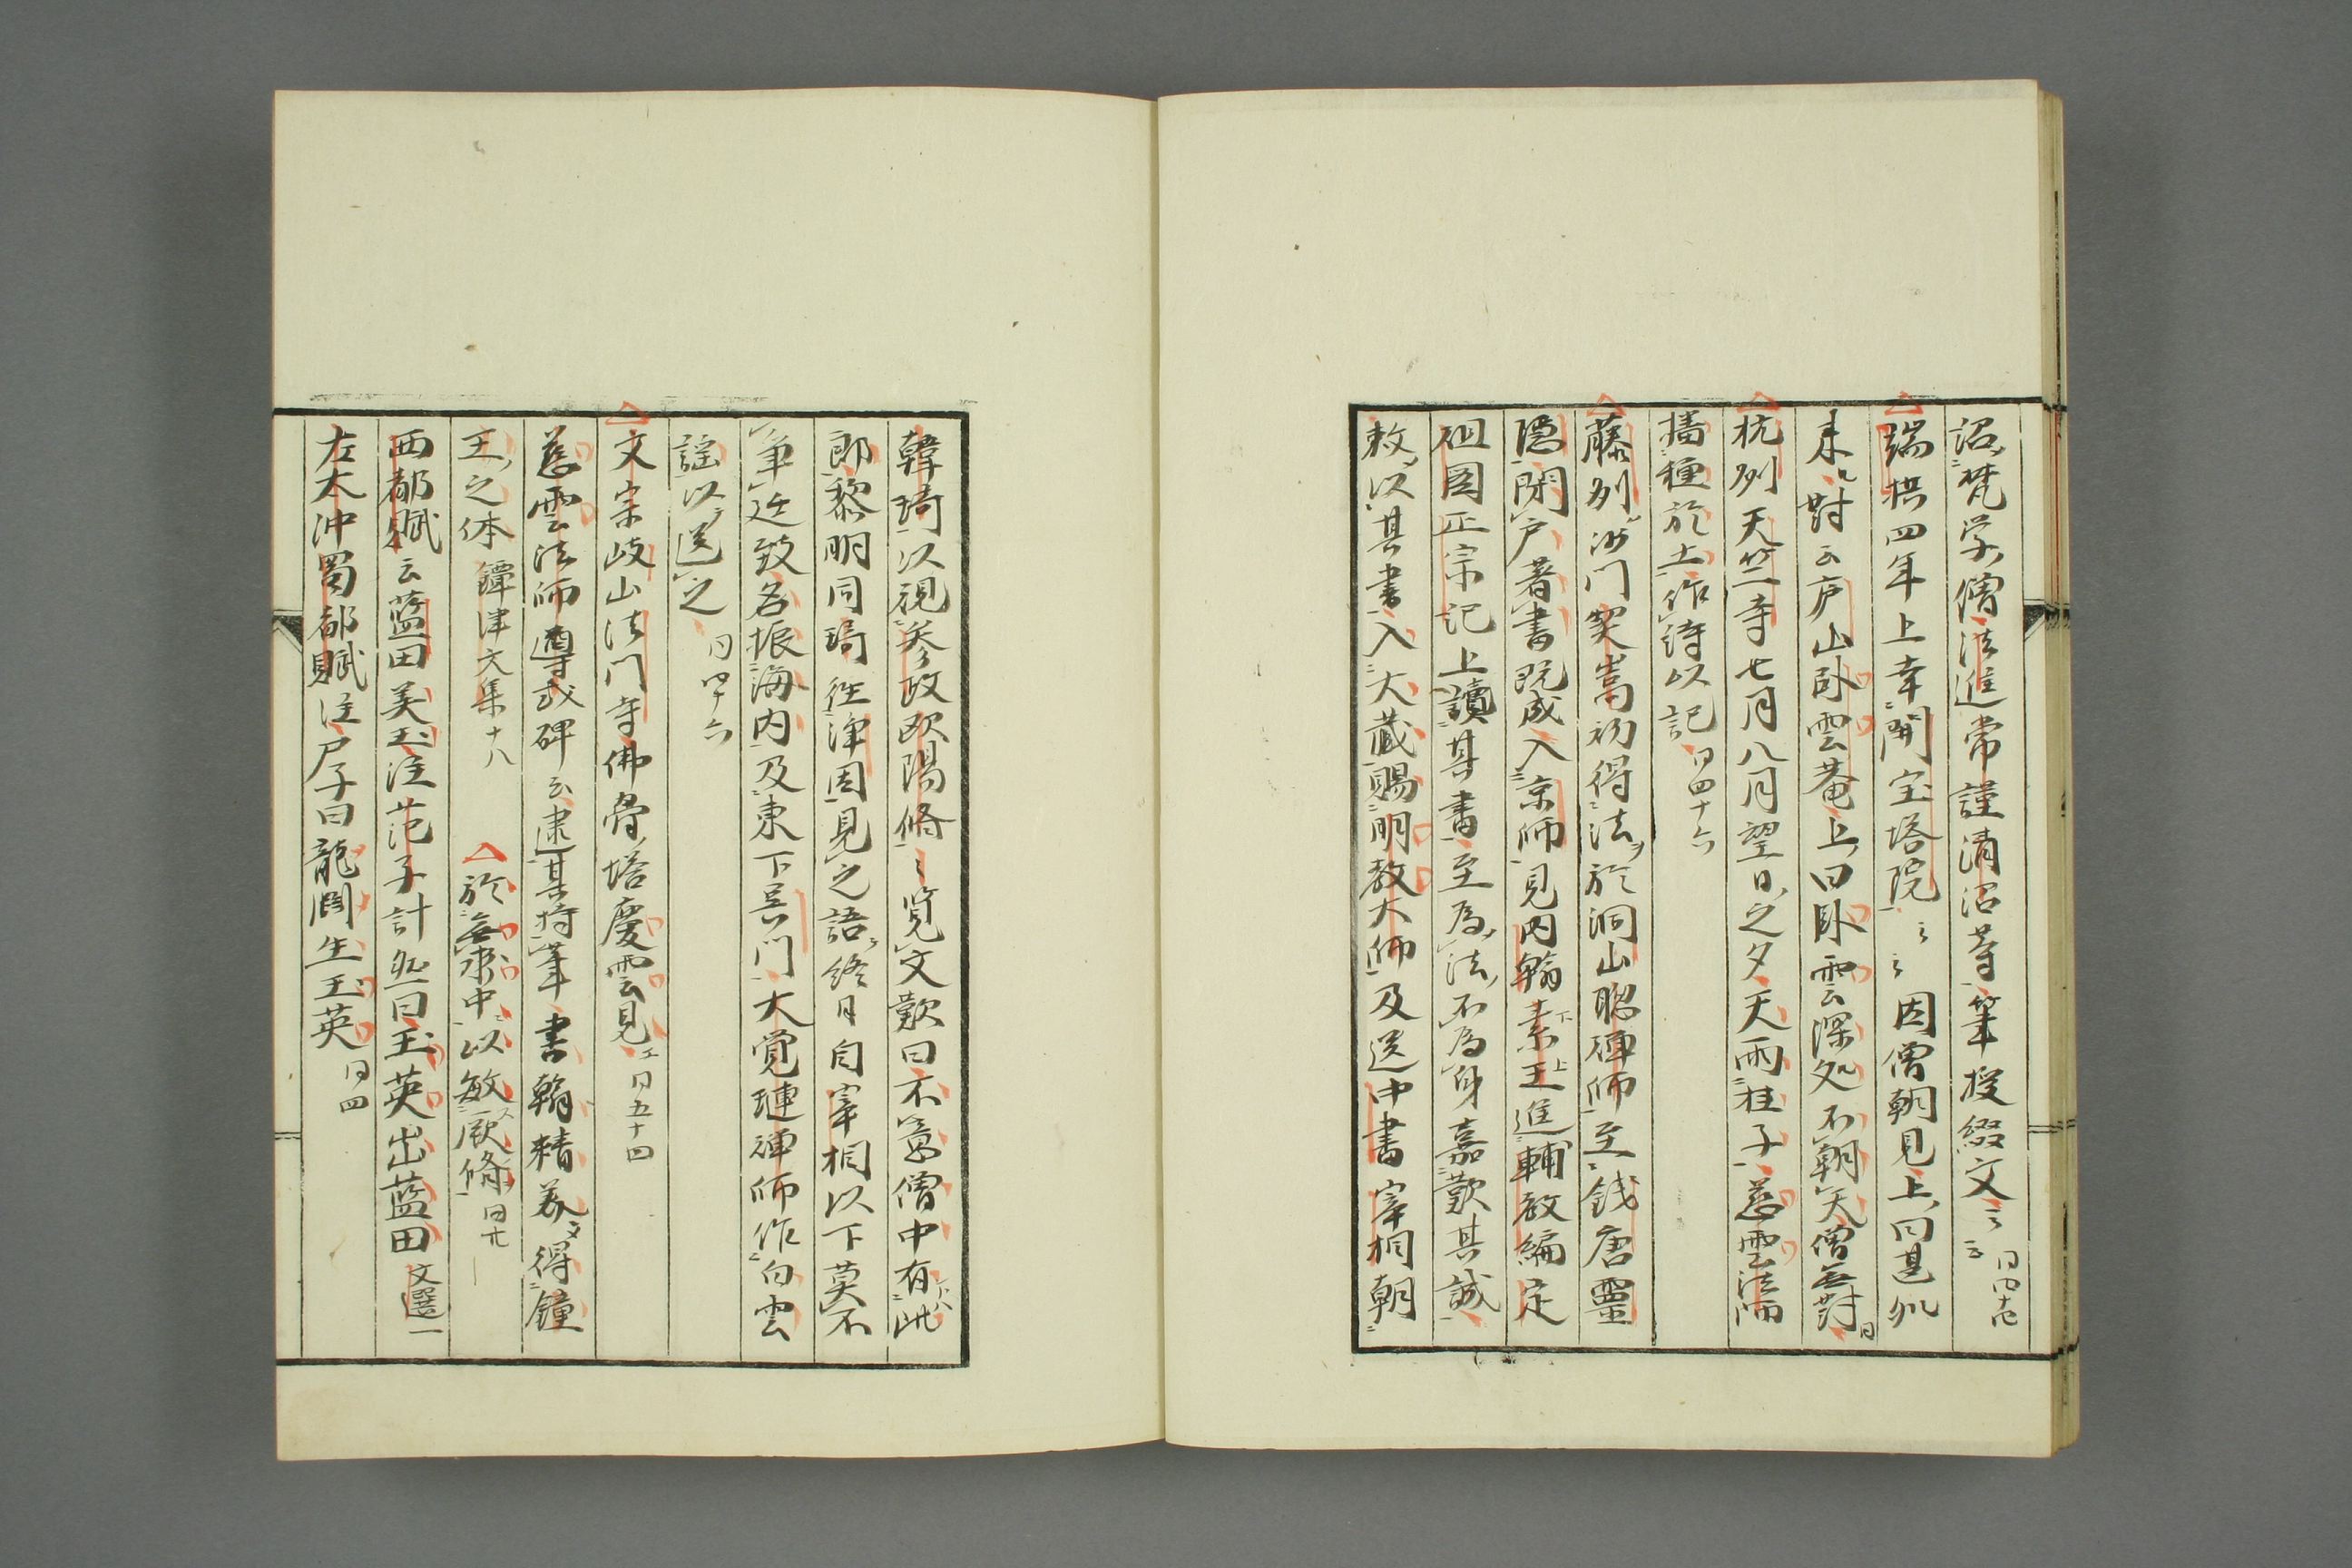 詔梵学僧法進常謹清沼等筆授綴文云云同四十三
端拱四年上幸開宝塔院云云因僧朝見上問甚処
来対云庐山卧雲菴上曰卧雲深処不朝天僧無対同
杭州天竺寺七月八月望日之夕天雨桂子慈雲法師
播種於土作詩以記同四十六
藤州沙门契嵩初得法於洞山聡禅師至銭唐靈
隠閉户著書既成入京師見内翰素王進輔教編定
祖図正宗記上讀其書至為法不為身嘉歎其誠
敕以其書入大蔵賜明教大師及送中書宰相朝
韓琦以視参政欧陽脩々覧文歎曰不意僧中有此
郎黎明同琦往浄因見之語終日自宰相以下莫不
争延致名振海内及東下吴门大覚璉禅師作白雲
謡以送之同四十六
文宗岐山法门寺佛骨塔慶雲見同五十四
慈雲法師遵式碑云逮其持筆書翰精羙得鐘
王之体鐔津文集十八
於無求中以敏厥脩同廿
西都賦云蓝田美玉注范子計然曰玉英出蓝田文選一
左太沖蜀都賦注尸子曰龍渕生玉英同四